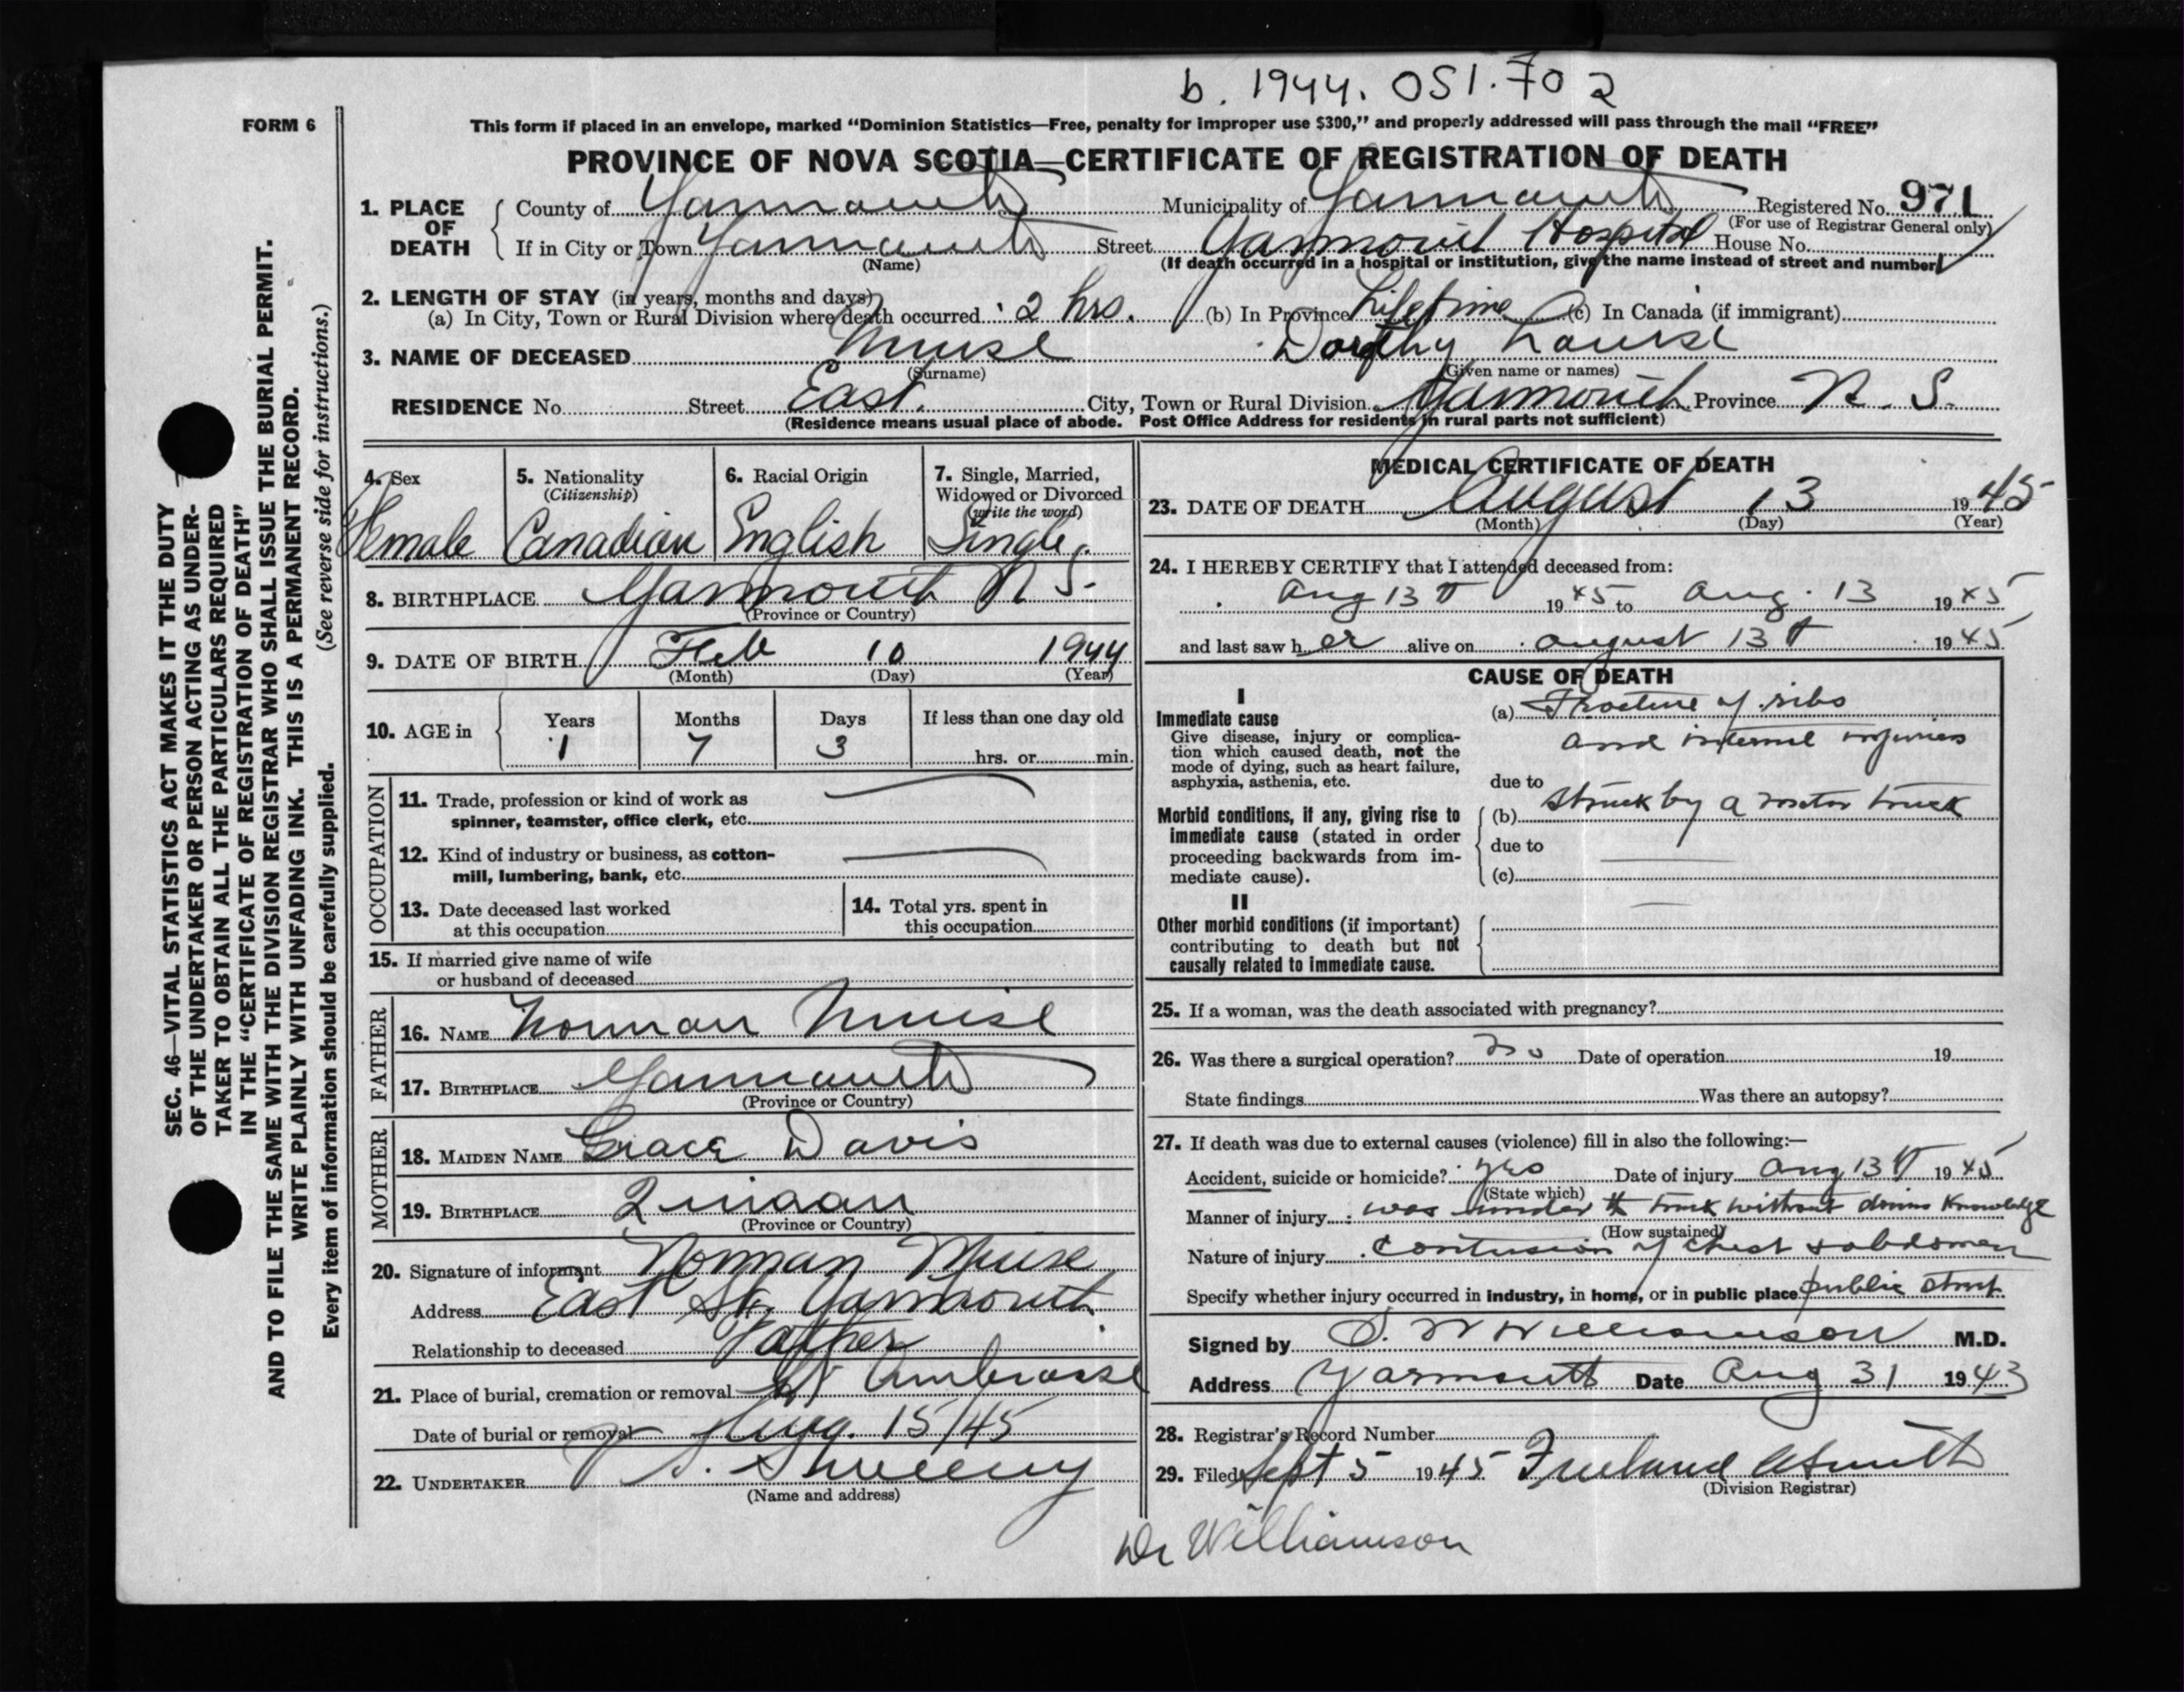 b. 1944. 051.702
FORM 6
This form if placed in an envelope, marked “Dominion Statistics—Free, penalty for improper use $300,” and properly addressed will pass through the mail “FREE”
PROVINCE OF NOVA SCOTIA—CERTIFICATE OF REGISTRATION OF DEATH
1. PLACE OF DEATH County of Yarmouth Municipality of Yarmouth Registered No. 971
(For use of Registrar General only)
If in City or Town Yarmouth Street Yarmouth Hospital House No.
(Name) (If death occurred in a hospital or institution, give the name instead of street and number)
2. LENGTH OF STAY (in years, months and days)
(a) In City, Town or Rural Division where death occurred 2 hrs. (b) In Province Lifetime (c) In Canada (if immigrant)
3. NAME OF DECEASED Muise Dorothy Louise
(Surname) (Given name or names)
RESIDENCE No. Street East. City, Town or Rural Division Yarmouth Province N. S.
(Residence means usual place of abode. Post Office Address for residents in rural parts not sufficient)
4. Sex 5. Nationality 6. Racial Origin 7. Single, Married,
(Citizenship) Widowed or Divorced
(write the word)
Female Canadian English Single
8. BIRTHPLACE Yarmouth N S.
(Province or Country)
9. DATE OF BIRTH Feb 10 1944
(Month) (Day) (Year)
10. AGE in Years Months Days If less than one day old
1 7 3 hrs. or min.
OCCUPATION
11. Trade, profession or kind of work as
spinner, teamster, office clerk, etc.
12. Kind of industry or business, as cotton-
mill, lumbering, bank, etc.
13. Date deceased last worked
at this occupation
14. Total yrs. spent in
this occupation
15. If married give name of wife
or husband of deceased
FATHER
16. NAME Norman Muise
17. BIRTHPLACE Yarmouth
(Province or Country)
MOTHER
18. MAIDEN NAME Grace Davis
19. BIRTHPLACE Quinan
(Province or Country)
20. Signature of informant Norman Muise
Address East St. Yarmouth.
Relationship to deceased Father
21. Place of burial, cremation or removal St Ambrose
Date of burial or removal Aug. 15/45
22. UNDERTAKER V. S. Sweeny
(Name and address)
MEDICAL CERTIFICATE OF DEATH
23. DATE OF DEATH August 13 1945
(Month) (Day) (Year)
24. I HEREBY CERTIFY that I attended deceased from:
Aug 13th 1945 to Aug. 13 1945
and last saw her alive on august 13th 1945
CAUSE OF DEATH
I
Immediate cause
Give disease, injury or complica-
tion which caused death, not the
mode of dying, such as heart failure,
asphyxia, asthenia, etc.
(a) Fracture of ribs
and internal injuries
due to
Morbid conditions, if any, giving rise to
immediate cause (stated in order
proceeding backwards from im-
mediate cause).
(b) struck by a motor truck
due to
(c)
II
Other morbid conditions (if important)
contributing to death but not
causally related to immediate cause.
25. If a woman, was the death associated with pregnancy?
26. Was there a surgical operation? no Date of operation 19
State findings Was there an autopsy?
27. If death was due to external causes (violence) fill in also the following:—
Accident, suicide or homicide? yes Date of injury Aug 13th 1945
(State which)
Manner of injury was under the truck without drivers knowledge
(How sustained)
Nature of injury Contusion of chest & abdomen
Specify whether injury occurred in industry, in home, or in public place public street
Signed by S. W Williamson M.D.
Address Yarmouth Date Aug 31 1943
28. Registrar's Record Number
29. Filed Sept 5 1945 Freeland A Smith
(Division Registrar)
Dr Williamson
SEC. 46—VITAL STATISTICS ACT MAKES IT THE DUTY
OF THE UNDERTAKER OR PERSON ACTING AS UNDER-
TAKER TO OBTAIN ALL THE PARTICULARS REQUIRED
IN THE “CERTIFICATE OF REGISTRATION OF DEATH”
AND TO FILE THE SAME WITH THE DIVISION REGISTRAR WHO SHALL ISSUE THE BURIAL PERMIT.
WRITE PLAINLY WITH UNFADING INK. THIS IS A PERMANENT RECORD.
Every item of information should be carefully supplied. (See reverse side for instructions.)